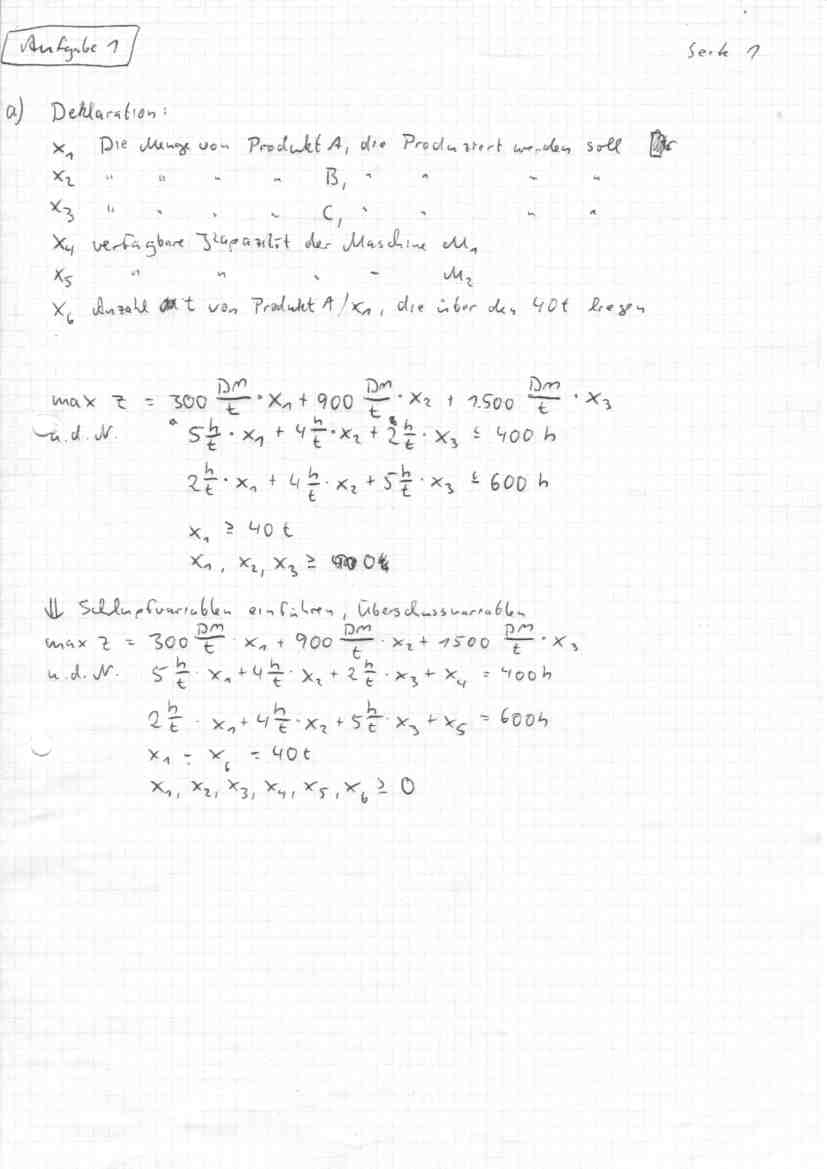 Aufgabe 1
Seite 1
a) Deklaration:
x₁ Die Menge von Produkt A, die Produziert werden soll
x₂ " " " " B, " " " "
x₃ " " " " C, " " " "
x₄ verfügbare Kapazität der Maschine M₁
x₅ " " " " M₂
x₆ Anzahl t von Produkt A/x₁, die über den 40t liegen
max z = 300 DM/t · x₁ + 900 DM/t · x₂ + 1.500 DM/t · x₃
u.d.N. 5 h/t · x₁ + 4 h/t · x₂ + 2 h/t · x₃ ≤ 400 h
2 h/t · x₁ + 4 h/t · x₂ + 5 h/t · x₃ ≤ 600 h
x₁ ≥ 40 t
x₁, x₂, x₃ ≥ 0
⇓ Schlupfvariablen einführen, Überschussvariablen
max z = 300 DM/t · x₁ + 900 DM/t · x₂ + 1500 DM/t · x₃
u.d.N. 5 h/t · x₁ + 4 h/t · x₂ + 2 h/t · x₃ + x₄ = 400h
2 h/t · x₁ + 4 h/t · x₂ + 5 h/t · x₃ + x₅ = 600h
x₁ - x₆ = 40t
x₁, x₂, x₃, x₄, x₅, x₆ ≥ 0